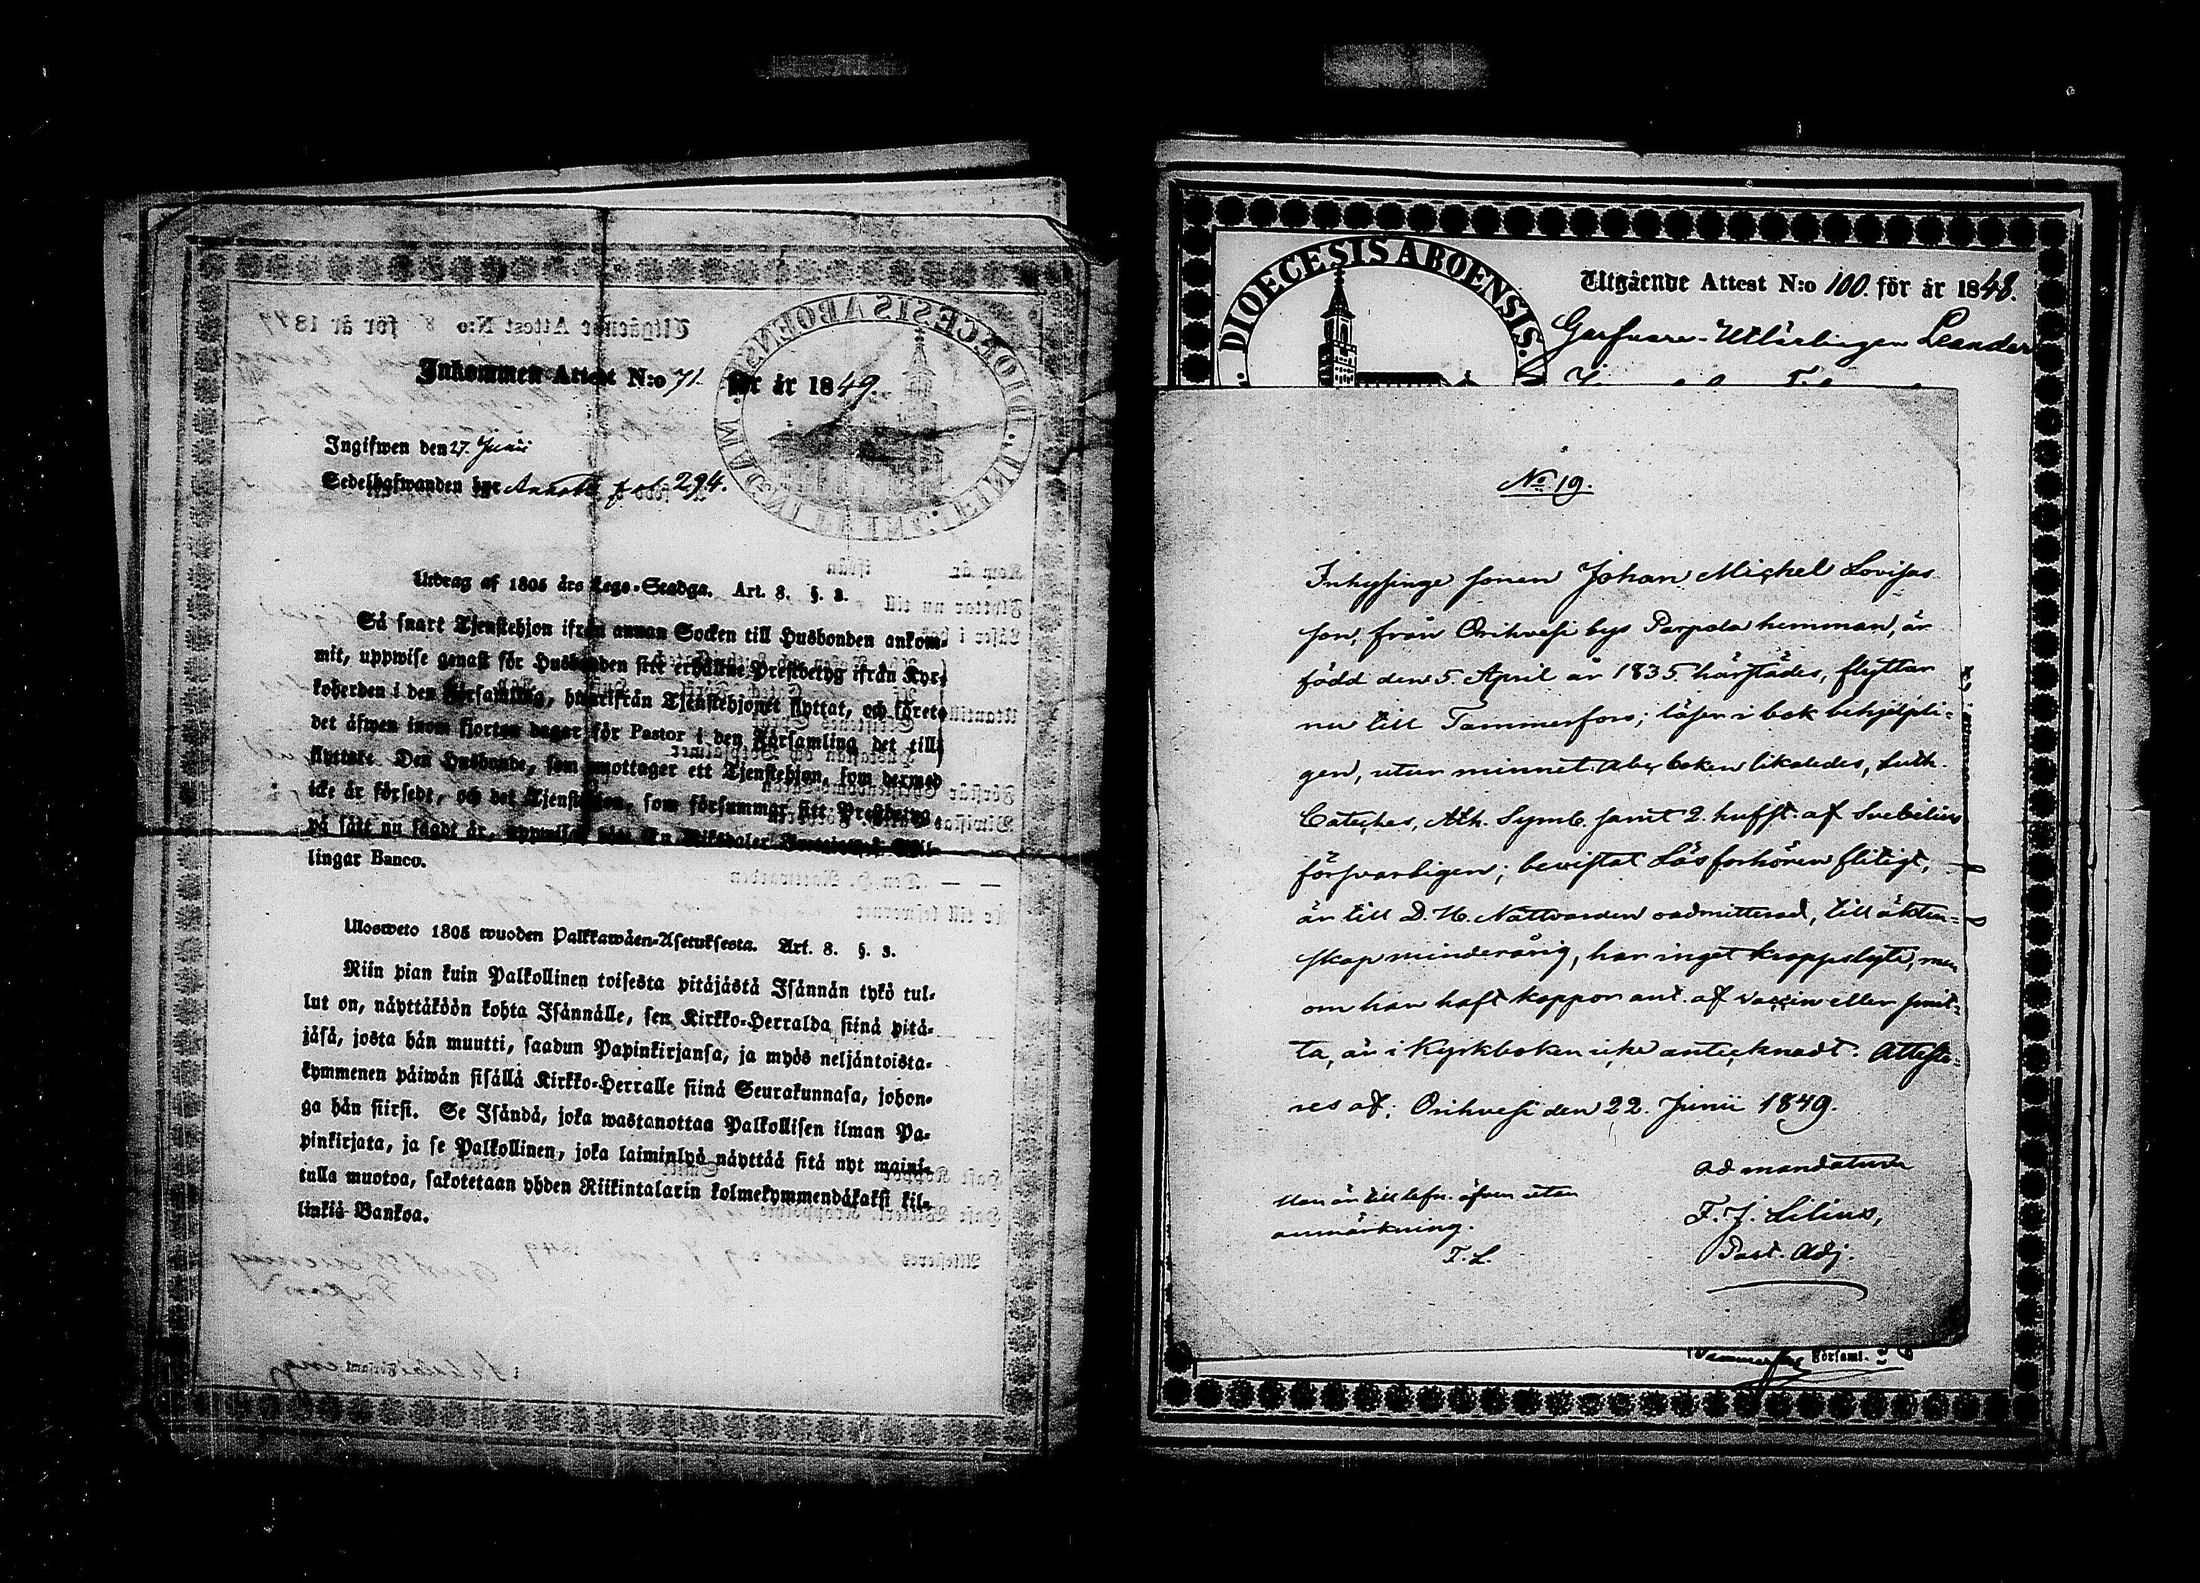 Inkommen Attest N:o 71. för år 1849.
Ingifwen den 27. Junii
Sedelhafwanden bor Annota fol. 294.
Utdrag af 1805 års Lego-Stadga. Art. 8. §. 3.
Så snart Tjenstehjon ifrån annan Socken till Husbonden ankom-
mit, uppwise genast för Husbonden sitt erhållne Prestbetyg ifrån Kyr-
koherden i den Församling, hwarifrån Tjenstehjonet flyttat, och förete
det äfwen inom fjorton dagar för Pastor i den Församling det till-
flyttade. Den Husbonde, som emottager ett Tjenstehjon, som dermed
icke är försedt, och det Tjenstehjon, som försummar sitt Prestbetyg
på sätt nu sagdt är, uppwisa, En Riksdaler Skil-
lingar Banco.
Ulosweto 1805 wuoden Palkkawäen-Asetuksesta. Art. 8. §. 3.
Niin pian kuin Palkollinen toisesta pitäjästä Isännän tykö tul-
lut on, näyttäköön kohta Isännälle, sen Kirkko-Herralda siinä pitä-
jäsä, josta hän muutti, saadun Papinkirjansa, ja myös neljäntoista-
kymmenen päiwän sisällä Kirkko-Herralle siinä Seurakunnasa, johon-
ga hän siirsi. Se Isändä, joka wastanottaa Palkollisen ilman Pa-
pinkirjata, ja se Palkollinen, joka laiminlyö näyttää sitä nyt maini-
tulla muotoa, sakotetaan yhden Riikintalarin kolmekymmendäkaksi kil-
linkiä Bankoa.
DIOECESIS ABOENSIS.
Utgående Attest N:o 100. för år 1848.
Garfvare-Utlärlingen Leander
No 19.
Inhysinge sonen Johan Michel Lovisas
son, från Orihvesi bys Parpola hemman, är
född den 5. April år 1835. härstädes, flyttar
nu till Tammerfors; läser i bok behjelpli-
gen, utur minnet Abc, boken likaledes, Luth.
Cateches, Ath. Symb. samt 2. hufst. af Svebilius
försvarligen; bevistat Läsförhören flitigt,
är till D. H. Nattvarden oadmitterad, till äkten-
skap minderårig, har inget kroppslyte, men
om han haft koppor ant. af vaccin eller smit-
ta, är i Kyrkboken icke antecknadt. Atteste-
res af; Orihvesi den 22. Junii 1849.
ad mandatum
F. J. Lilius,
Past. Adj.
Man är till lefn. äfven utan
anmärkning.
F. L.
Tammerfors Församl.